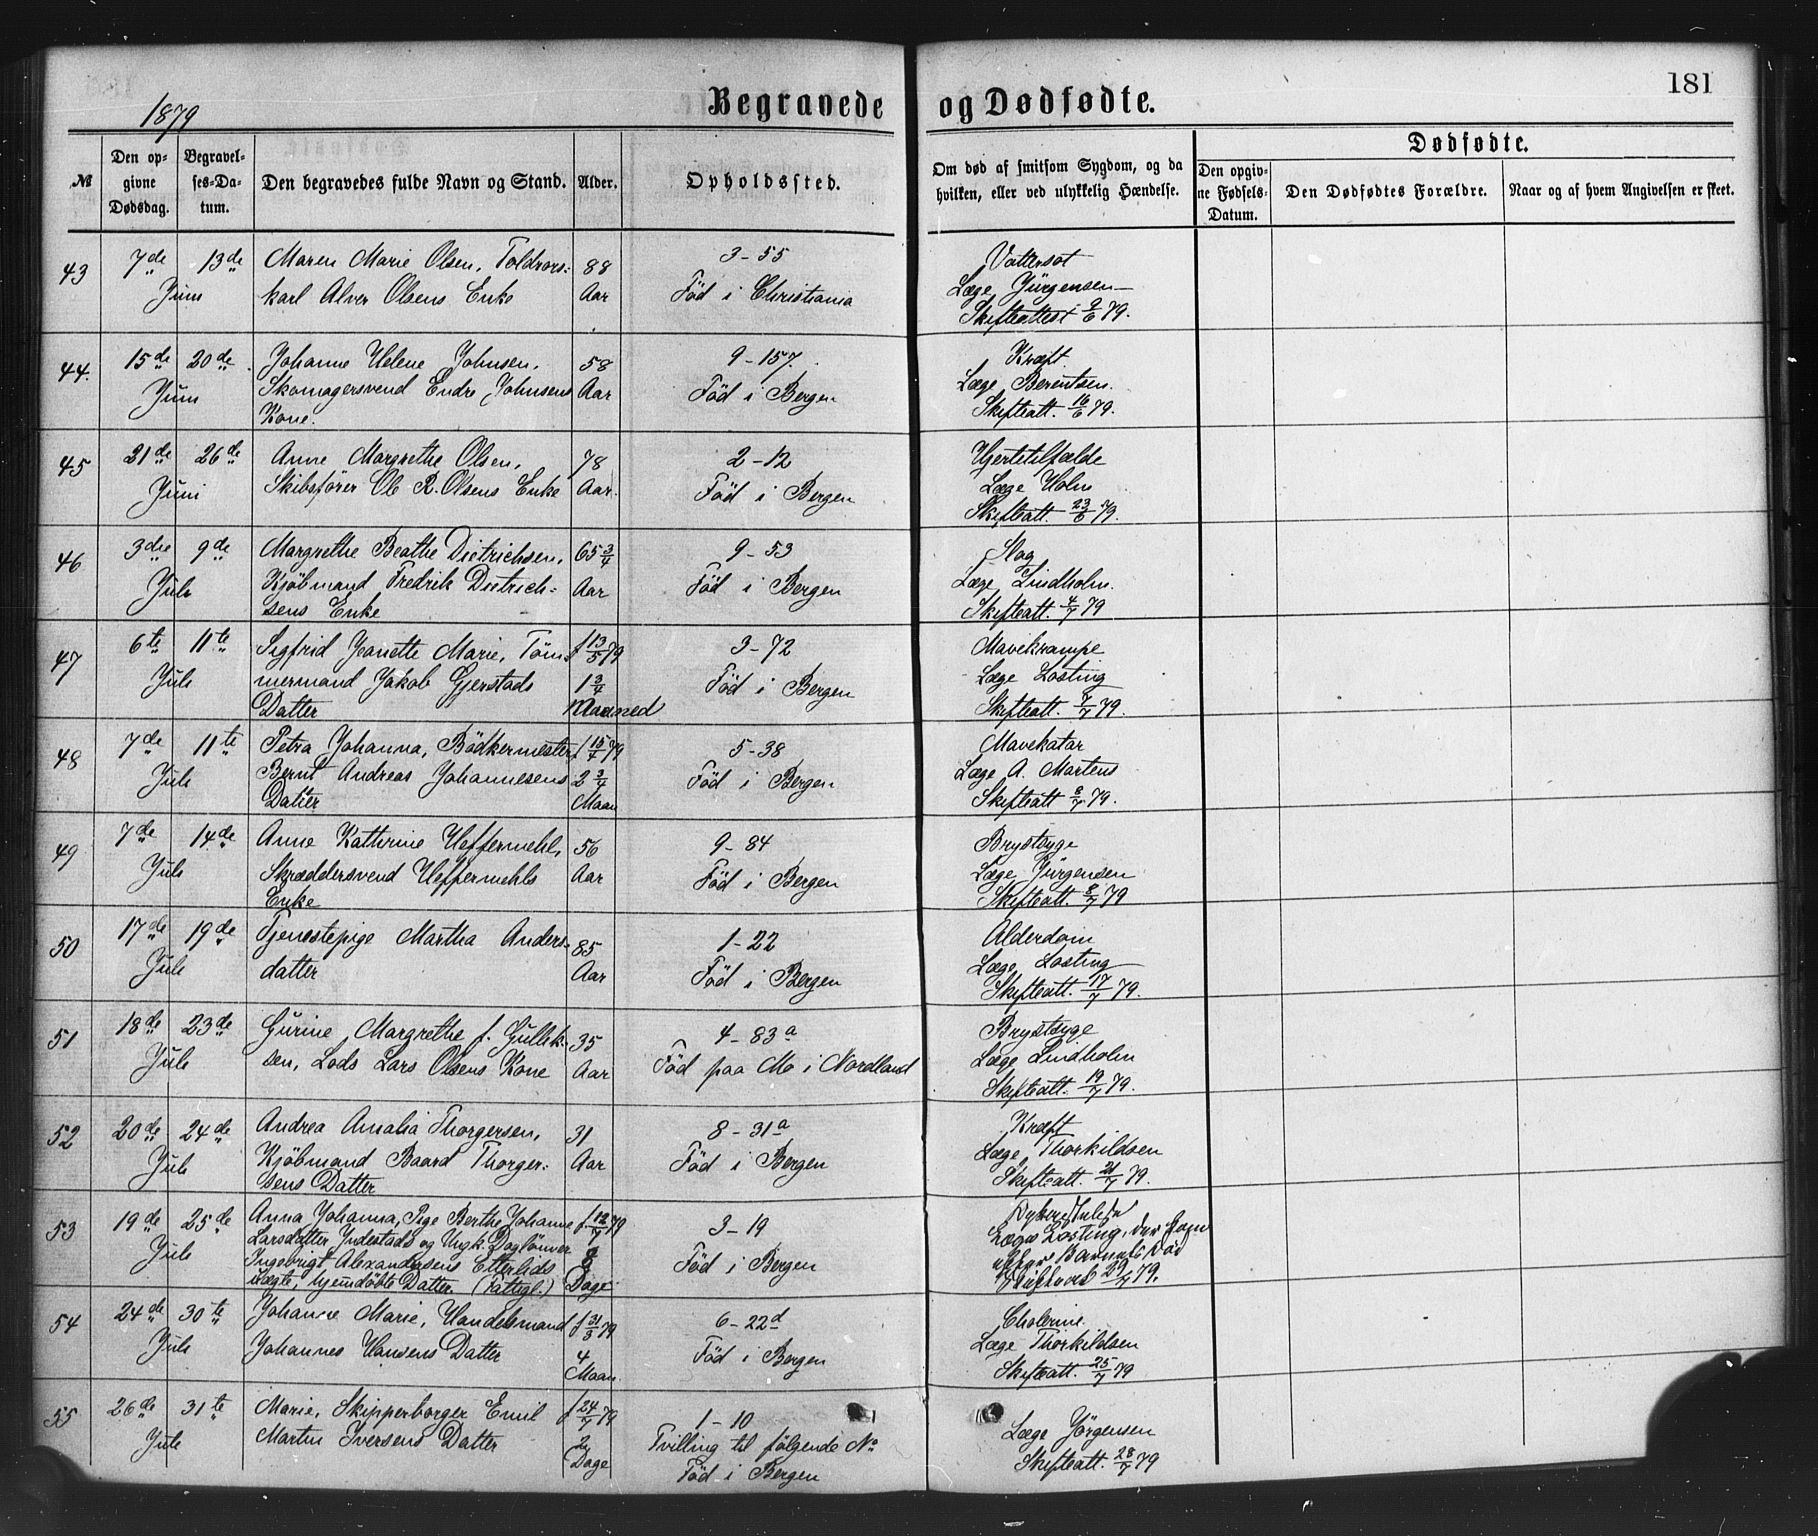 181
1879
Begravede og Dødfødte.
№
Den opgivne Dødsdag.
Begravelses-Datum.
Den begravedes fulde Navn og Stand.
Alder.
Opholdssted.
Om død af smitsom Sygdom, og da hvilken, eller ved ulykkelig Hændelse.
Dødfødte.
Den opgivne Fødsels-Datum.
Den Dødfødtes Forældre.
Naar og af hvem Angivelsen er skeet.
43 7de 13de Maren Marie Olsen, Toldrors- 88 3-55 Vattersot
Juni karl Alver Olsens Enke Aar Föd i Christiania Læge Jürgensen
Skifteattest 9/6 79.
44. 15de 20de Johanne Helene Johnsen, 58 9-157. Kræft
Juni Skomagersvend Endre Johnsens Aar Föd i Bergen Læge Berentsen.
Kone. Skifteatt. 16/6 79.
45 21de 26de Anne Margrethe Olsen, 78 2-12 Hjertetilfælde
Juni Skibsfører Ole R. Olsens Enke Aar. Föd i Bergen Læge Holm
Skifteatt. 23/6 79.
46 3die 9de Margrethe Beathe Dietrichsen, 65 3/4 9-53 Slag
Juli Kjöbmand Fredrik Dietrich- Aar Föd i Bergen Læge Lindholm.
sens Enke Skifteatt. 4/7 79
47 6te 11te Sigfrid Jeanette Marie, Töm- f 13/5 79 3-72 Mavekrampe
Juli mermand Jakob Gjerstads 1 3/4 Föd i Bergen Læge Losting
Datter Maaned Skifteatt. 7/7 79.
48 7de 11te Petra Johanna, Bödkermester f 15/4 79 5-38 Mavekatar
Juli Bernt Andreas Johannesens 2 3/4 Föd i Bergen Læge A. Martens
Datter Maan Skifteatt 8/7 79.
49 7de 14de Anne Kathrine Heffermehl, 56 9-84 Brystsyge
Juli Skræddersvend Heffermehls Aar Föd i Bergen Læge Jürgensen
Enke Skifteatt. 8/7 79
50 17de 19de Tjenestepige Martha Anders- 85 1-22 Alderdom
Juli datter Aar Föd i Bergen Læge Losting
Skifteatt. 17/7 79.
51 18de 23de Gurine Margrethe f. Gullik- 35 4-83a Brystsyge
Juli sen, Lods Lars Olsens Kone Aar Föd paa Mo i Nordland Læge Lindholm
Skifteatt. 19/7 79.
52 20de 24de Andrea Amalia Thorgersen, 31 8-31a Kræft
Juli Kjöbmand Baard Thorger- Aar Föd i Bergen Læge Thorkildsen
sens Datter Skifteatt. 21/7 79.
53 19de 25de Anna Johanna, Pige Berthe Johanne f. 12/7 79 3-19
Juli Larsdatter Indestads og Ungk. Daglönner 8 Læge Losting, der
Ingebrigt Alexandersens Etterlids Dage Föd i Bergen Barnets Död
uægte, hjemdöbte Datter. (Fattigl.) 79.
54 24de 30te Johanne Marie, Handelsmand f 31/3 79 6-22d Cholerine.
Juli Johannes Hansens Datter 4 Föd i Bergen Læge Thorkildsen
Maan Skifteatt. 25/7 79
55 26de 31te Marie, Skipperborger Emil f 24/7 79 1-10 Læge Jörgensen
Juli Martin Iversens Datter 2 Tvilling til følgende No
Dage Föd i Bergen Skifteatt. 28/7 79